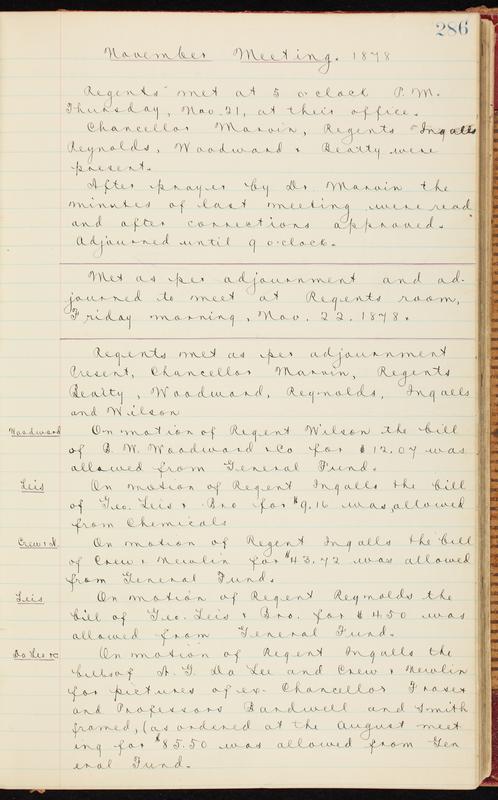 286
November Meeting. 1878
Regents met at 5 o'clock P.M.
Thursday, Nov. 21, at their office.
Chancellor Marvin, Regents Ingalls
Reynolds, Woodward & Beatty were
present.
After prayer by Dr. Marvin the
minutes of last meeting were read
and after corrections approved.
Adjourned until 9 o'clock.
Met as per adjournment and ad-
journed to meet at Regents room,
Friday morning, Nov. 22. 1878.
Regents met as per adjournment
Present, Chancellor Marvin, Regents
Beatty, Woodward, Reynolds, Ingalls
and Wilson
Woodward On motion of Regent Wilson the bill
of B. W. Woodward & Co for $12.07 was
allowed from General Fund.
Leis On motion of Regent Ingalls the bill
of Geo. Leis & Bro for $9.16 was allowed
from Chemicals
Crew & N. On motion of Regent Ingalls the bill
of Crew & Newlin for $43.72 was allowed
from General Fund.
Leis On motion of Regent Reynolds the
bill of Geo. Leis & Bro. for $4.50 was
allowed from General Fund.
Da Lee &c On motion of Regent Ingalls the
bills of A. G. Da Lee and Crew & Newlin
for pictures of ex-Chancellor Fraser
and Professors Bardwell and Smith
framed, (as ordered at the August meet
ing for $85.50 was allowed from Gen
eral Fund.